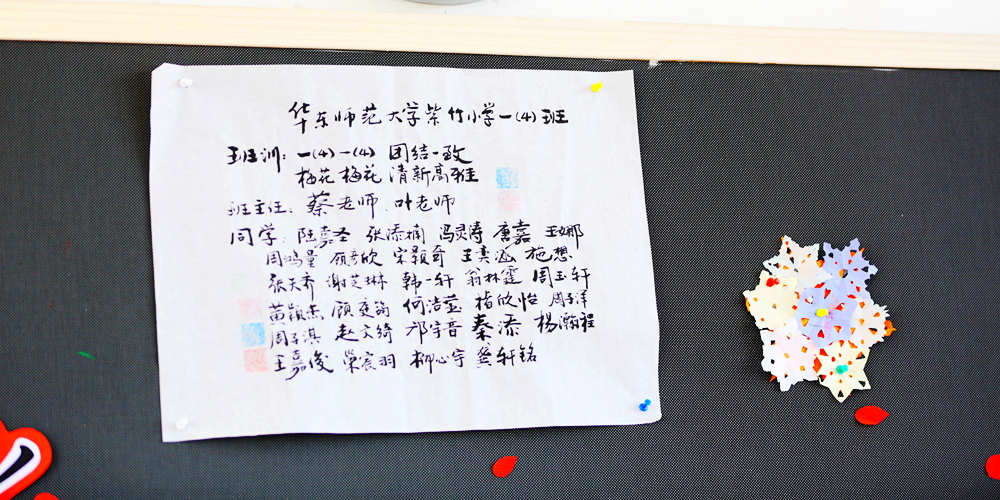 华东师范大学紫竹小学一(4)班
班训：一(4)一(4) 团结一致
梅花梅花 清新高雅
班主任：蔡老师 叶老师
同学：陆嘉圣 张添楠 冯灵涛 唐嘉 王娜
周鸿量 顾彦欣 宋颖奇 王真涵 施想
张天乔 谢芝琳 韩一轩 翁林霆 周玉轩
黄颖杰 顾庭韵 何浩莹 褚欣怡 周子洋
周子淇 赵文绮 邝宇晋 秦添 杨瀚程
王嘉俊 荣宸羽 柳心宇 龚轩铭